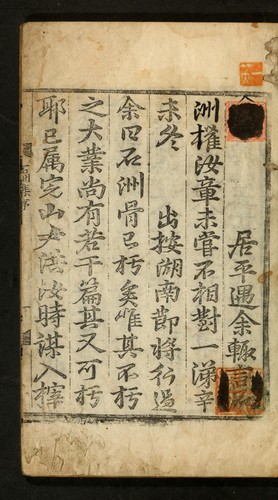 居平遇余輒言石
洲權汝章未嘗不相對一涕辛
未冬 出按湖南節將行過
余曰石洲骨已朽矣惟其不朽
之大業尚有若干篇其又可朽
耶已属完山尹洪汝時謀入榟